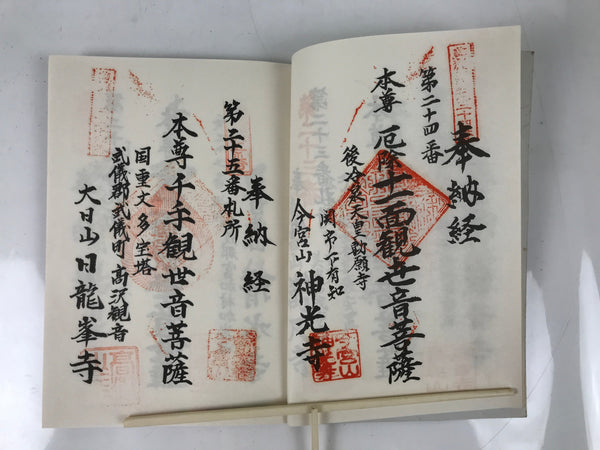 奉納経
第二十四番
本尊 厄除十一面観世音菩薩
後冷泉天皇勅願寺
関市下有知
今宮山 神光寺
奉納経
第二十五番札所
本尊千手観世音菩薩
国重文多宝塔
武儀郡武儀町 高沢観音
大日山日龍峯寺